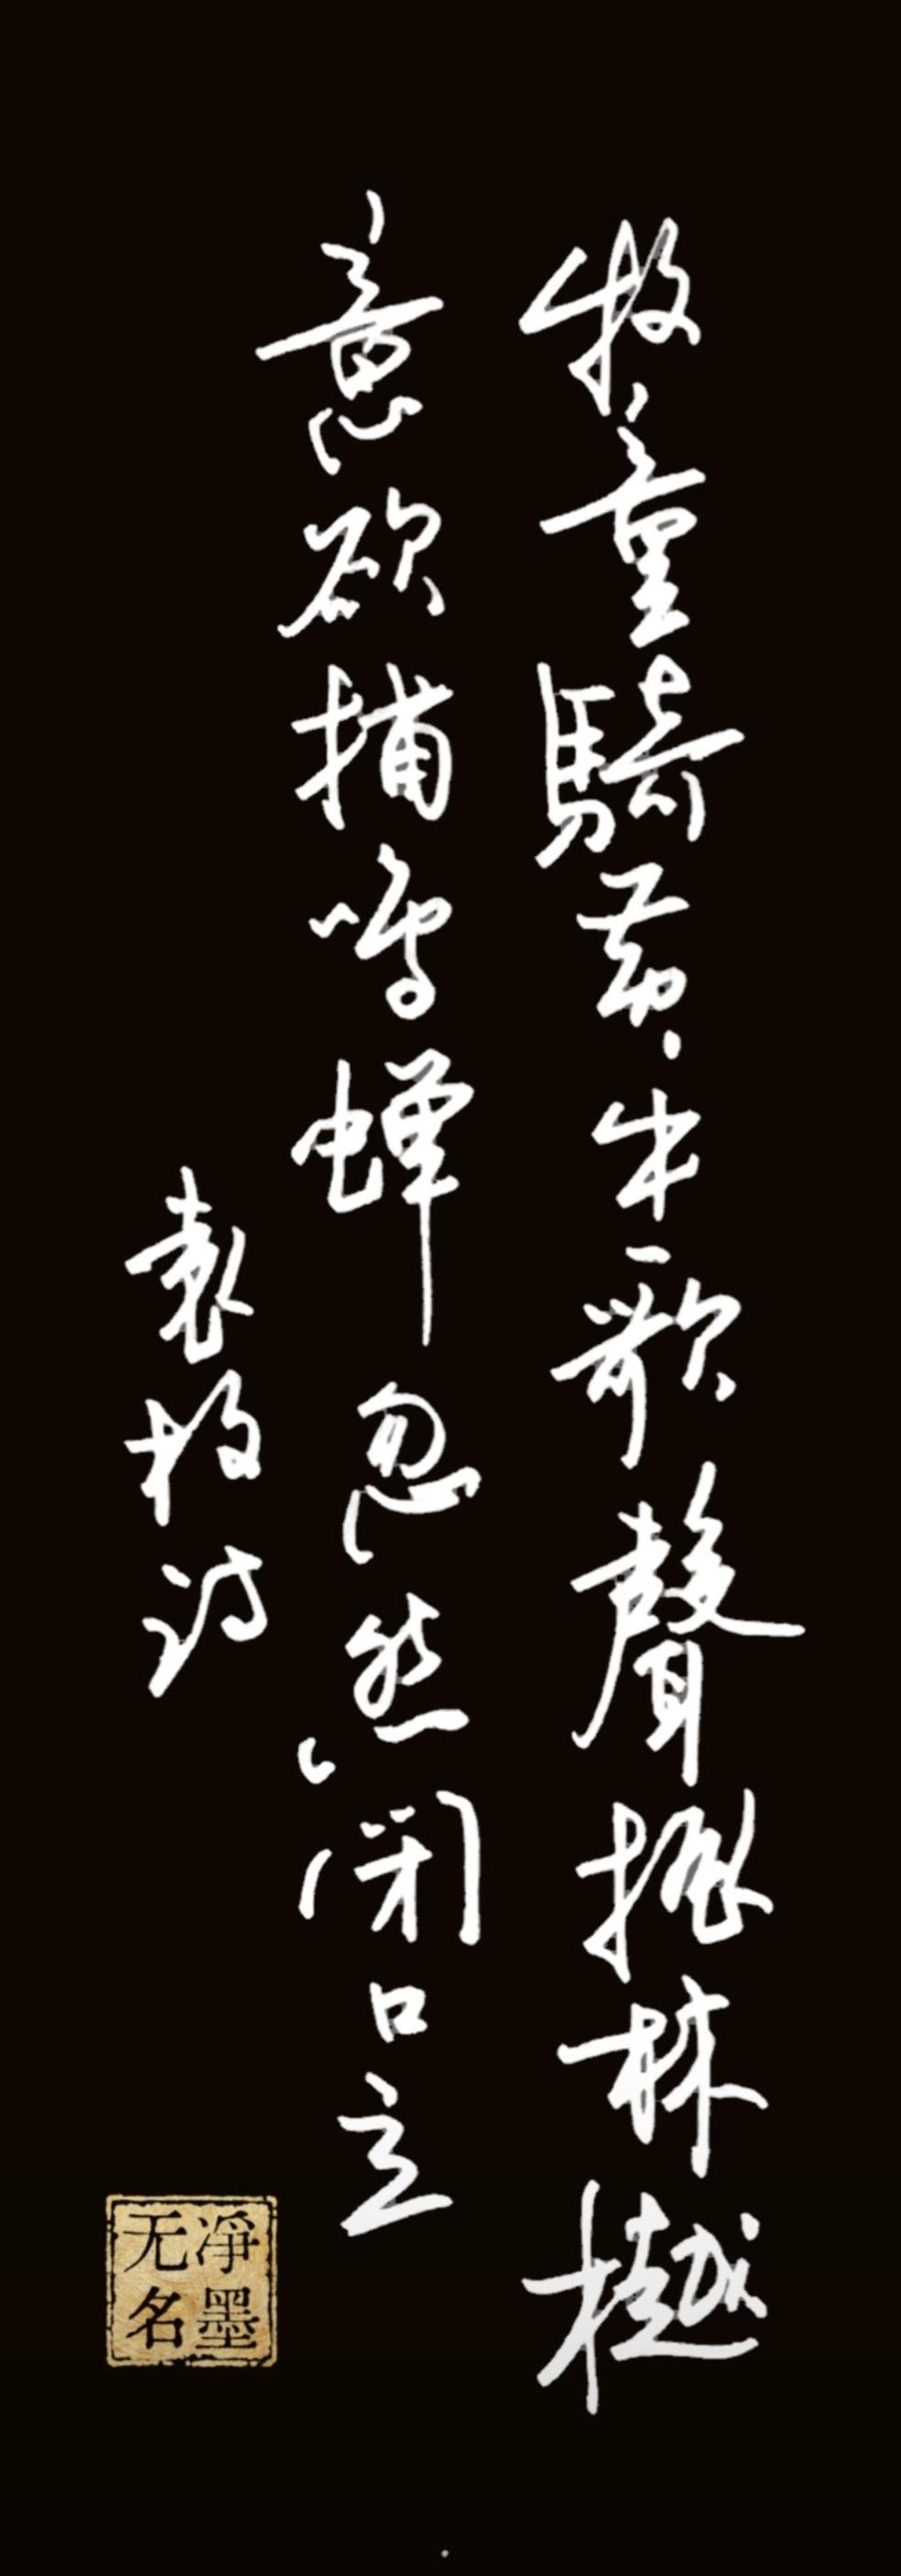 牧童騎黃牛歌聲振林樾
意欲捕鳴蟬忽然閉口立
袁枚詩
淨墨
无名